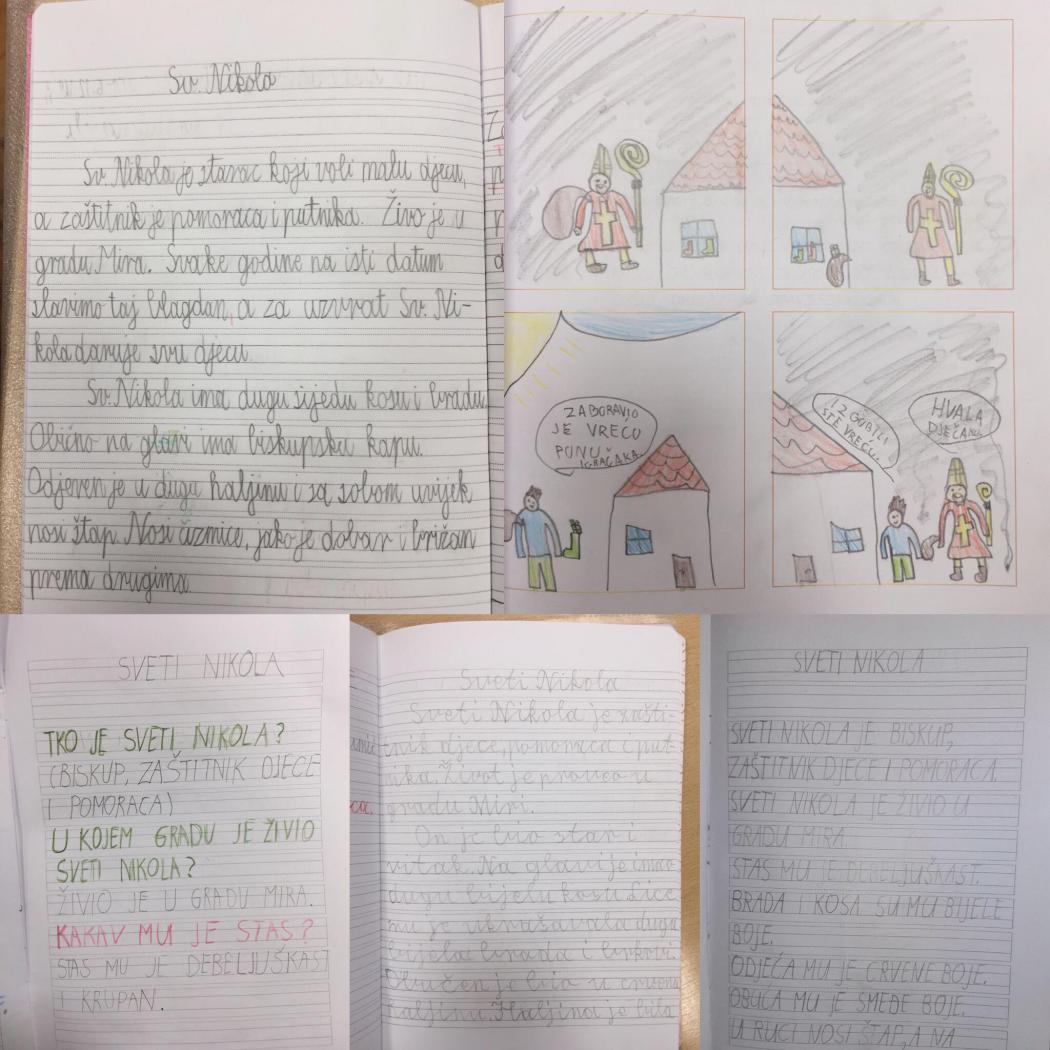 Sv. Nikola
Sv. Nikola je starac koji voli malu djecu,
a zaštitnik je pomoraca i putnika. Živo je u
gradu Mira. Svake godine na isti datum
slavimo taj blagdan, a za uzvrat Sv. Ni-
kola daruje svu djecu.
Sv. Nikola ima dugu sijedu kosu i bradu.
Obično na glavi ima biskupsku kapu.
Odjeven je u dugu haljinu i sa sobom uvijek
nosi štap. Nosi čizmice, jako je dobar i brižan
prema drugima.
ZABORAVIO
JE VREĆU
PUNU
IGRAČAKA.
IZGUBILI
STE VREĆU.
HVALA
DJEČAČE.
SVETI NIKOLA
TKO JE SVETI NIKOLA?
(BISKUP, ZAŠTITNIK DJECE
I POMORACA)
U KOJEM GRADU JE ŽIVIO
SVETI NIKOLA?
ŽIVIO JE U GRADU MIRA.
KAKAV MU JE STAS?
STAS MU JE DEBELJUŠKAST
I KRUPAN.
Sveti Nikola
Sveti Nikola je zašti-
tnik djece, pomoraca i put-
nika. Život je proveo u
gradu Miri.
On je bio star i
vitak. Na glavi je imao
dugu bijelu kosu. Lice
mu je ukrašavala duga
bijela brada i brkovi.
Obučen je bio u crvenu
haljinu. Haljina je bila
SVETI NIKOLA
SVETI NIKOLA JE BISKUP,
ZAŠTITNIK DJECE I POMORACA.
SVETI NIKOLA JE ŽIVIO U
GRADU MIRA.
STAS MU JE DEBELJUŠKAST.
BRADA I KOSA SU MU BIJELE
BOJE.
ODJEĆA MU JE CRVENE BOJE.
OBUĆA MU JE SMEĐE BOJE.
U RUCI NOSI ŠTAP, A NA